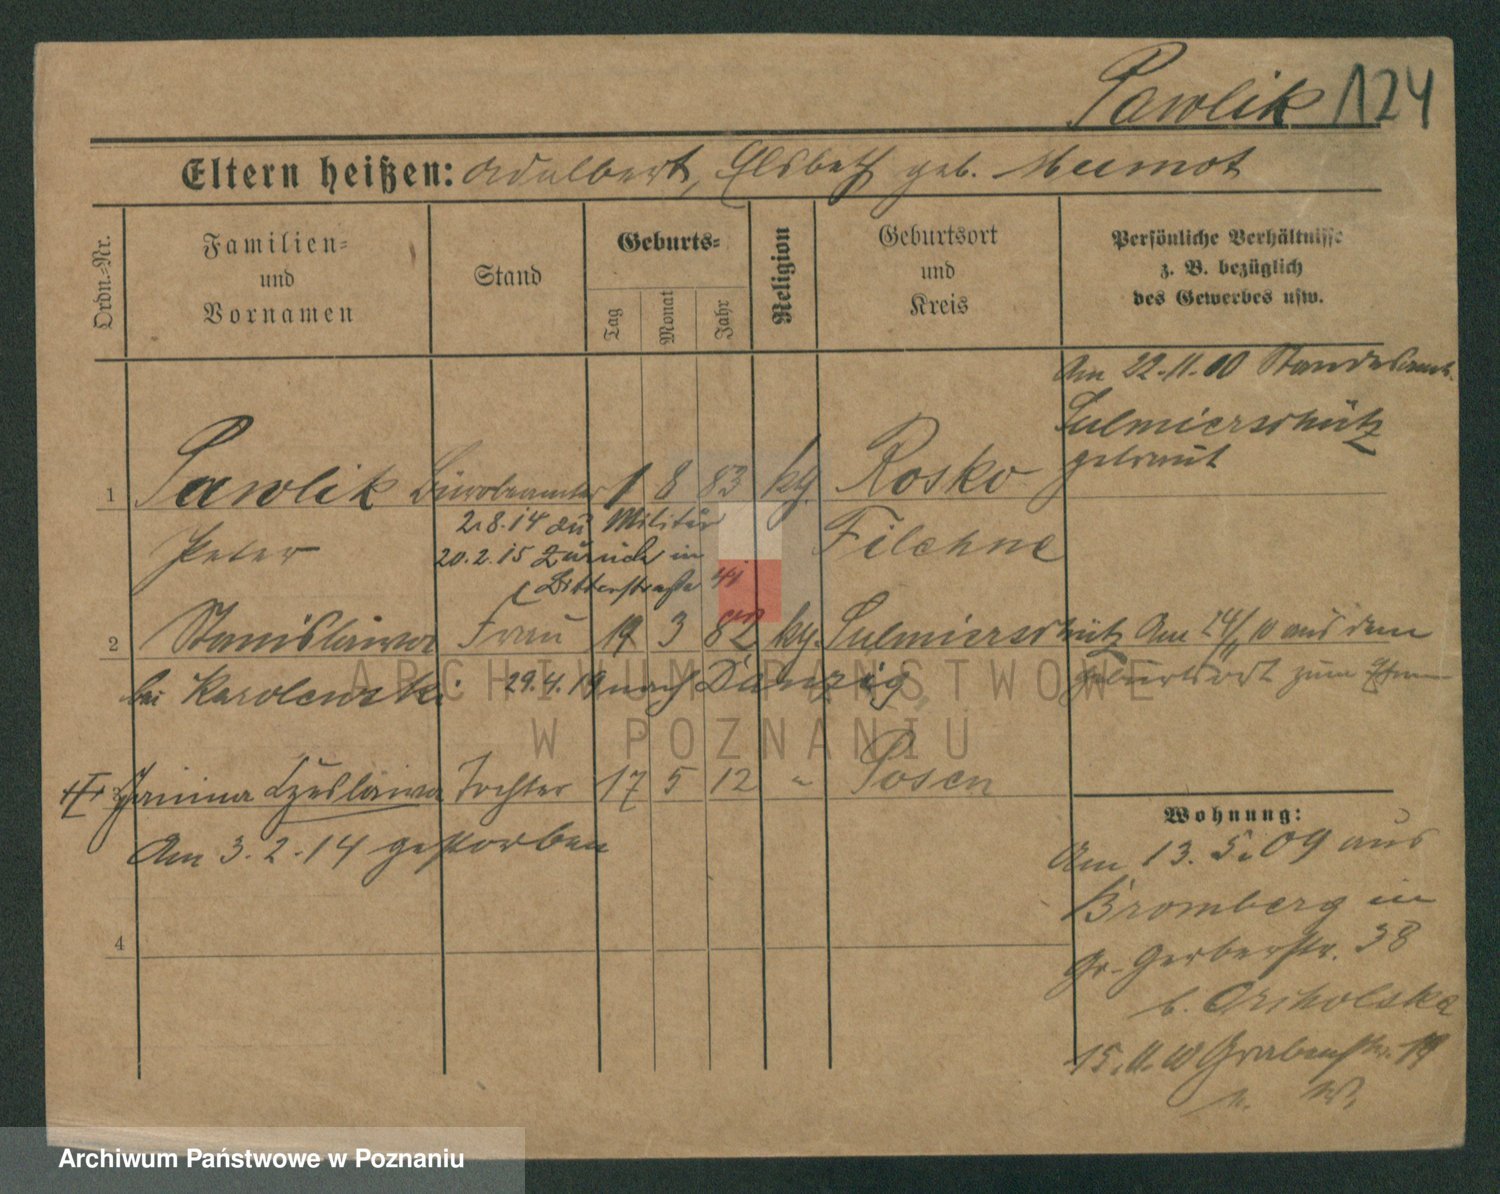 Pawlik 124
Eltern heißen: Adalbert, Elsbeth geb.
Ordn.-Nr.
Familien-
und
Vornamen
Stand
Geburts-
Tag
Monat
Jahr
Religion
Geburtsort
und
Kreis
Persönliche Verhältnisse
z. B. bezüglich
des Gewerbes usw.
Am 22.11.10 Standesamt
Sulmierschütz
getraut
1 Pawlik Bürobeamter 1 8 83 kg Rosko
Peter
2.8.14 zu Militär
Filehne
20.2.15 zurück in
Ritterstraße
2 Stanislawa Frau 19 3 82 kg. Sulmierschütz
Am 24/11 10 aus dem
Geburtsort zum
29.4.19 nach Danzig
3 Janina Czeslawa Tochter 17 5 12 " Posen
Am 3.2.14 gestorben
4
Wohnung:
Am 13.5.09 aus
Bromberg in
Gr. Gerberstr. 38
b.
15.11.10 Grabenstr. 19
ARCHIWUM PAŃSTWOWE
W POZNANIU
Archiwum Państwowe w Poznaniu